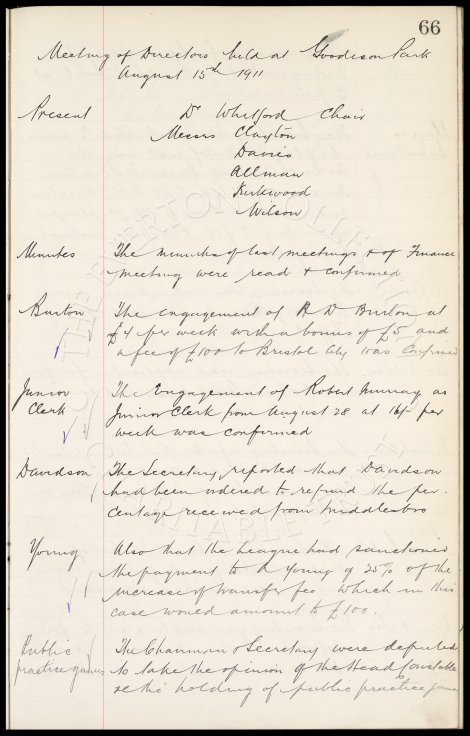 66
Meeting of Directors held at Goodison Park
August 15th 1911
Present Dr Whitford Chair
Messrs Clayton
Davies
Allman
Kirkwood
Wilson
Minutes The minutes of last meetings & of Finance
meeting were read & confirmed
Burton The engagement of A D Burton at
£4 per week with a bonus of £5 and
a fee of £100 to Bristol City was confirmed
Junior Clerk The Engagement of Robert Murray as
Junior Clerk from August 28 at 16/- per
week was confirmed
Davidson The Secretary reported that Davidson
had been ordered to refund the per-
centage received from Middlesbro
Young Also that the League had sanctioned
the payment to A Young of 25% of the
increase of transfer fee which in this
case would amount to £100.
Public practice games The Chairman & Secretary were deputed
to take the opinion of the Head Constable
re the holding of public practice game
THE EVERTON COLLECTION CHARITABLE TRUST